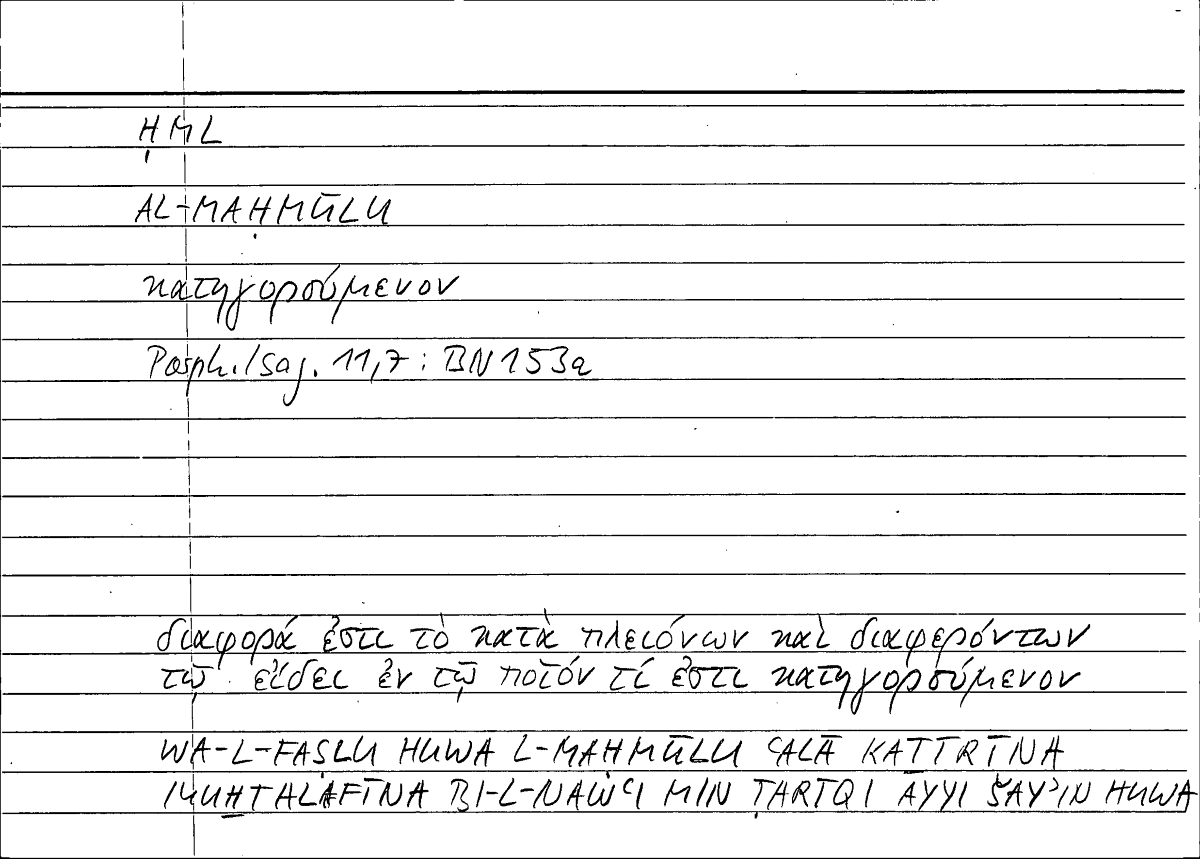 ḤML
AL-MAḤMŪLU
κατηγορούμενον
Porph. Isag. 11,7: BN 153a
διαφορά ἐστι τὸ κατὰ πλειόνων καὶ διαφερόντων
τῷ εἴδει ἐν τῷ ποῖόν τί ἐστι κατηγορούμενον
WA-L-FAṢLU HUWA L-MAḤMŪLU ʿALĀ KAṮĪRĪNA
MUḪTALAFĪNA BI-L-NAWʿI MIN ṬARĪQI AYYI ŠAYʾIN HUWA